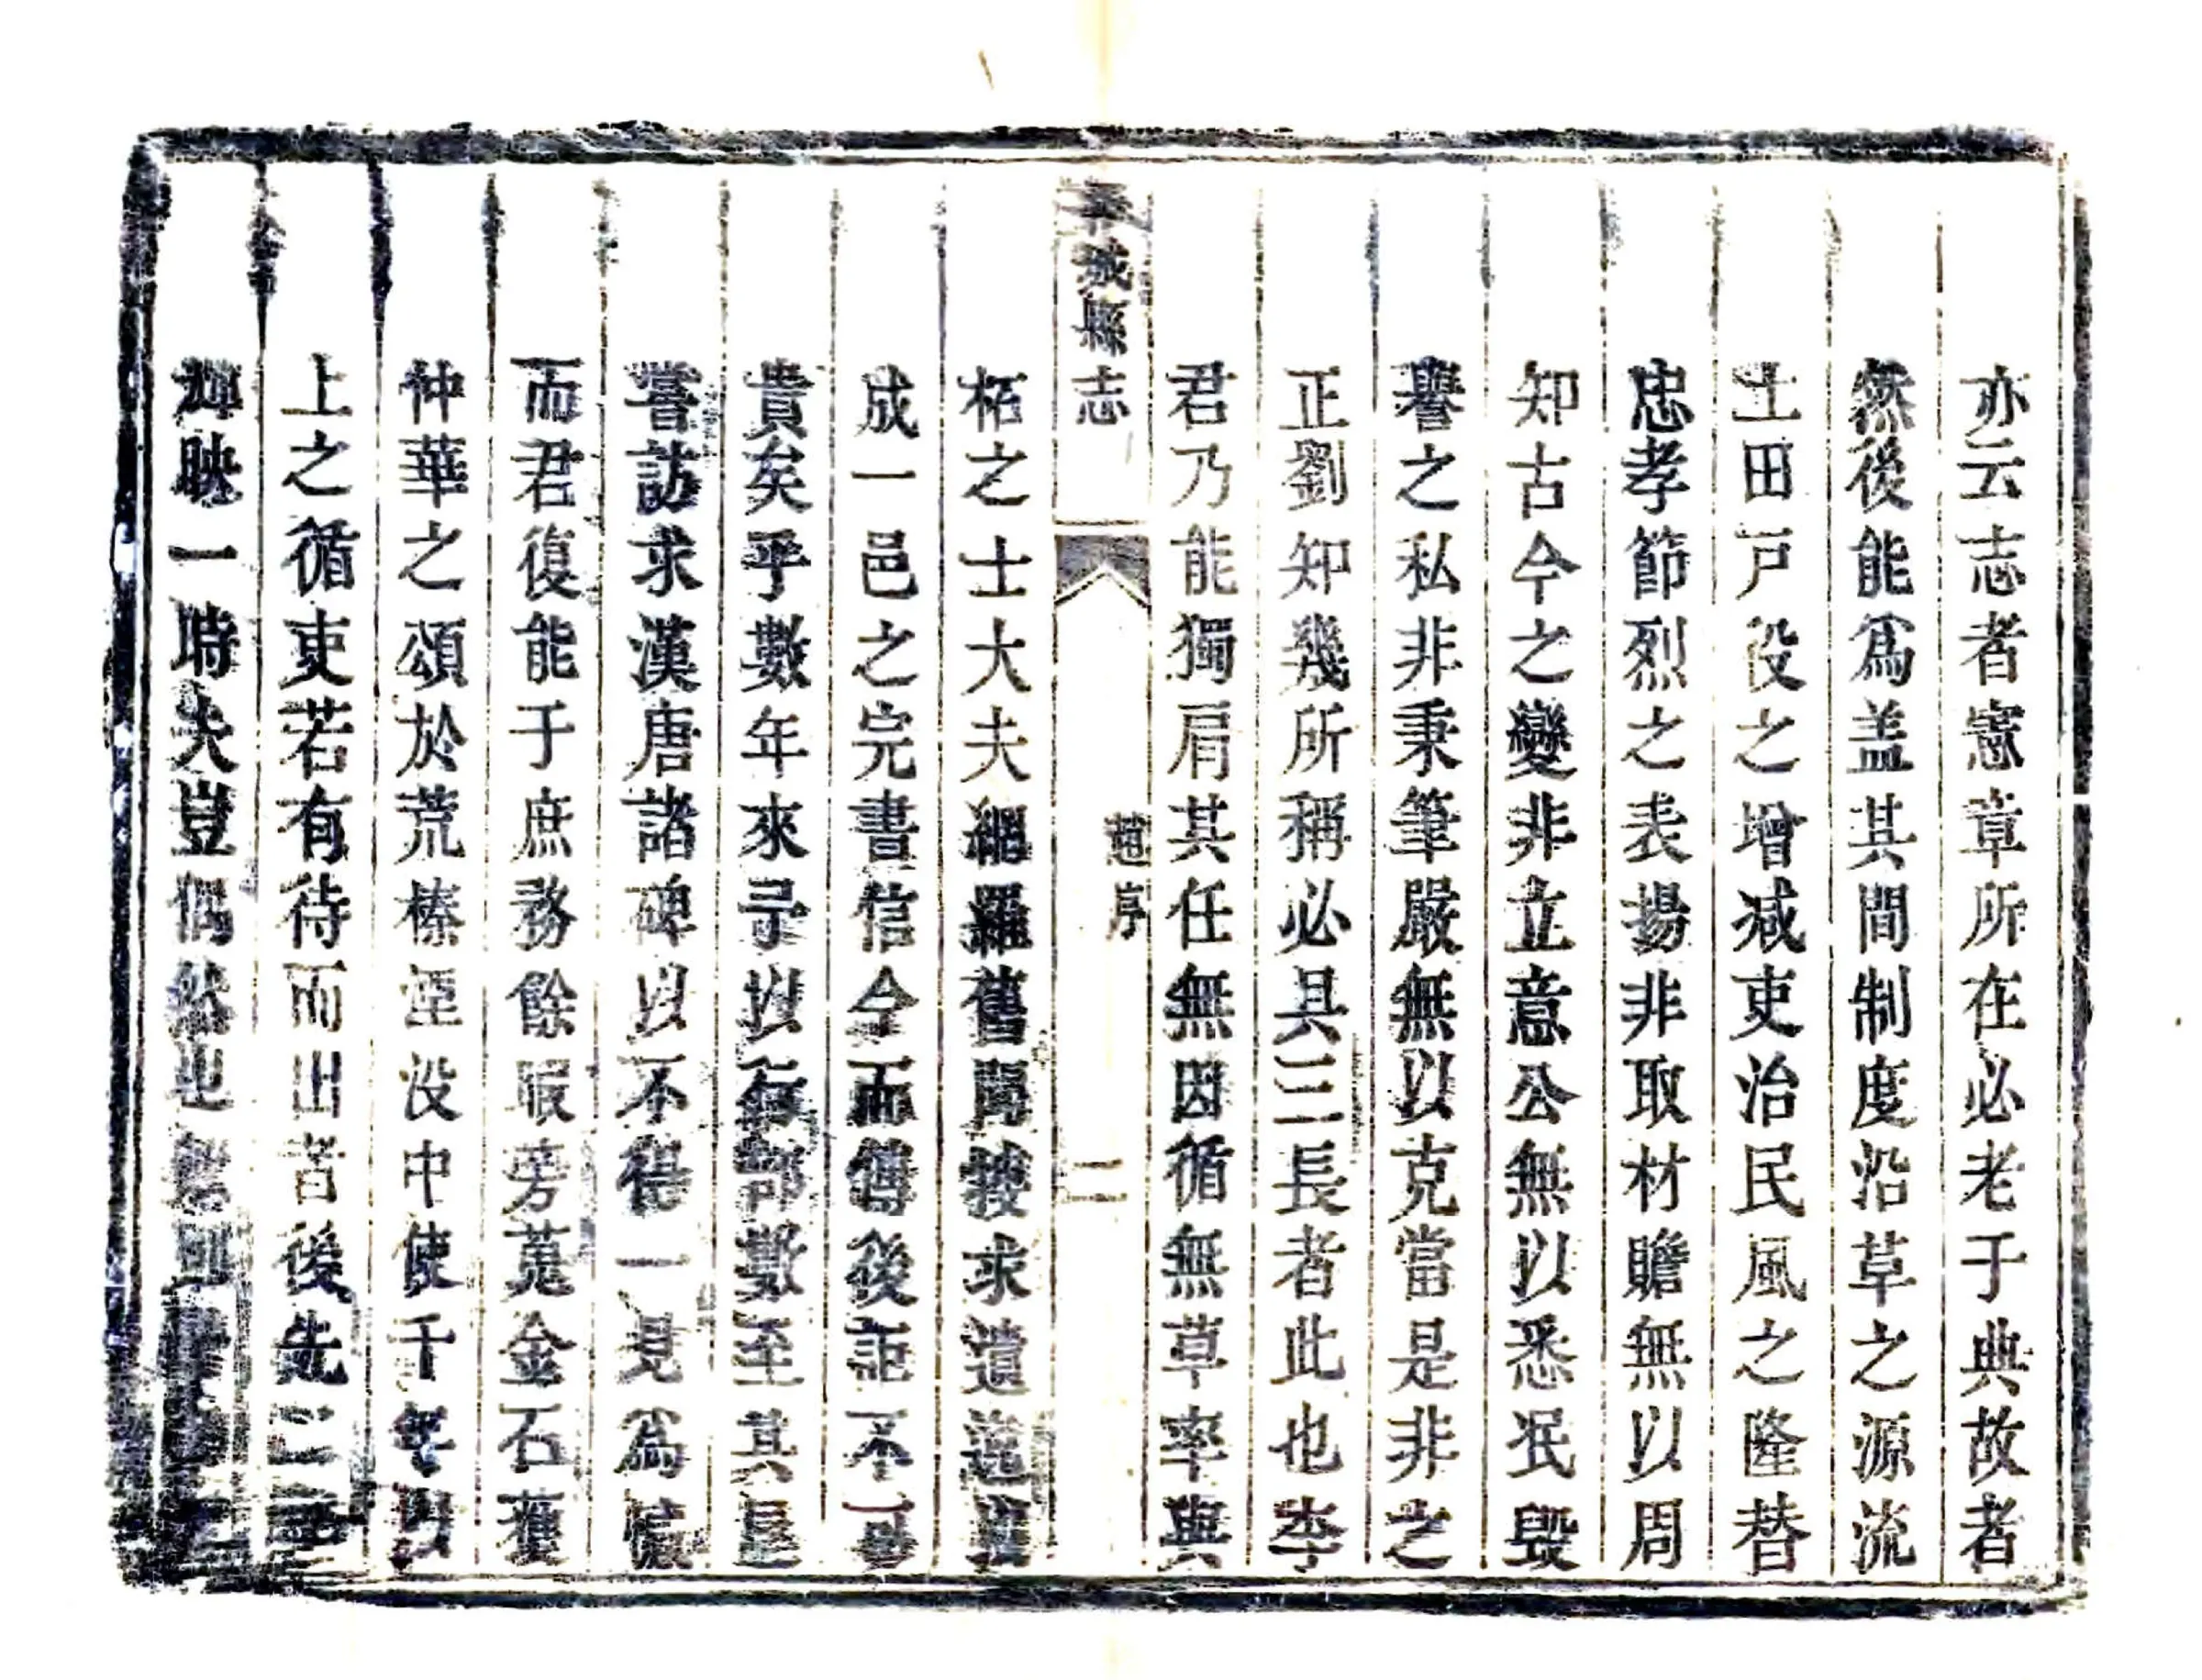 亦云志者憲章所在必老于典故者
然後能爲盖其間制度沿草之源流
土田戸役之增减吏治民風之隆替
忠孝節烈之表揚非取材贍無以周
知古今之變非立意公無以悉民毁
譽之私非秉筆嚴無以克當是非之
正劉知幾所稱必具三長者此也李
君乃能獨肩其任無因循無草率與
城縣志
趙序
二
柘之士大夫網羅舊聞搜求遺
成一邑之完書信今而傳後詎不
貴矣乎數年來予以郵數至其邑
嘗訪求漢唐諸碑以不得一見爲憾
而君復能于庶務餘暇旁蒐金石獲
仲華之頌於荒榛堙没中使千年以
上之循吏若有待而出者後先
輝映一時夫豈偶然也